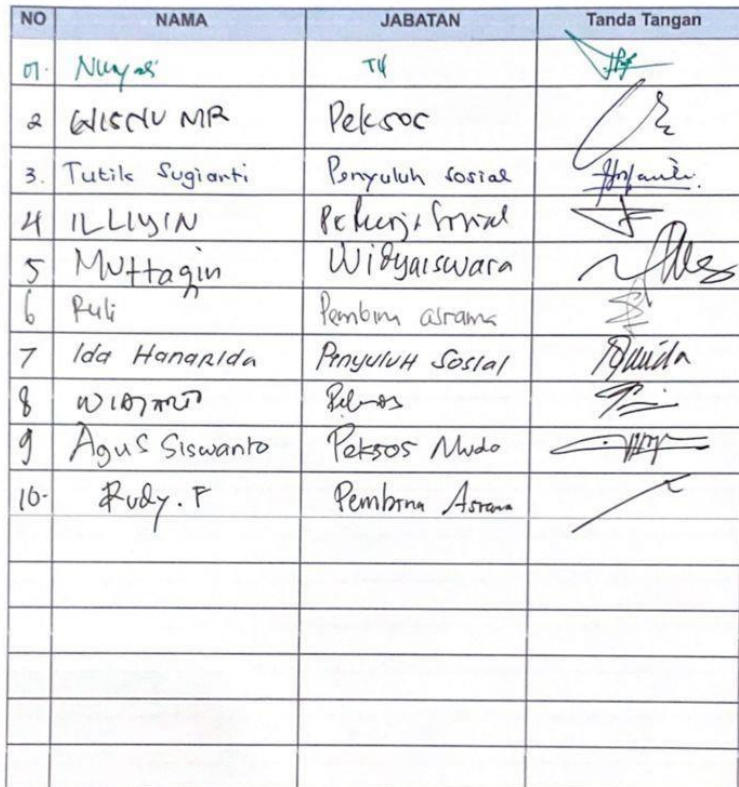 NO NAMA JABATAN Tanda Tangan
01.
2 WISNU MR Peksos
3. Tutik Sugianti Penyuluh Sosial
4 ILLIYIN Pekerja Sosial
5 Muttaqin Widyaiswara
6 Ruli Pembina asrama
7 Ida Hanarida Penyuluh Sosial
8
9 Agus Siswanto Peksos Muda
10- Rudy. F Pembina Asrama